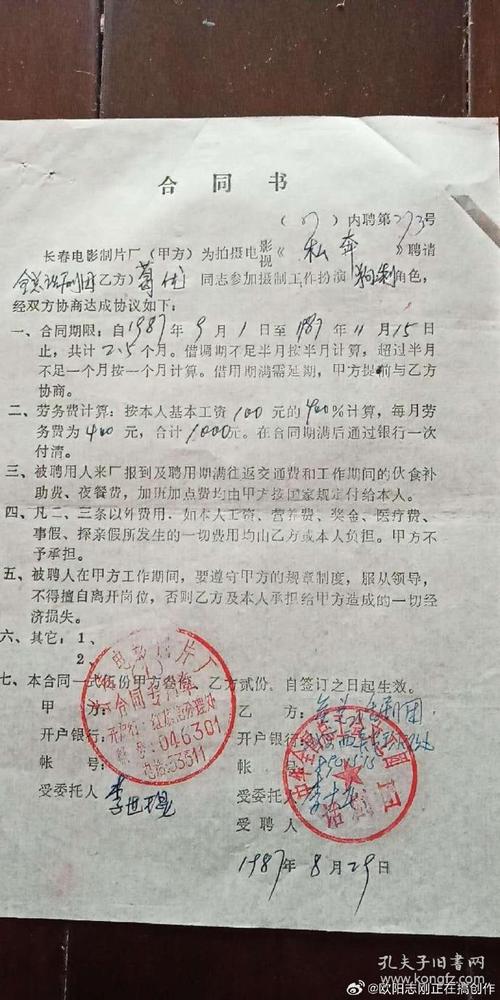 合同书
(87)内聘第273号
长春电影制片厂(甲方)为拍摄电影视《私奔》聘请
全总话剧团乙方)葛优同志参加摄制工作扮演角色,
经双方协商达成协议如下:
一、合同期限:自1987年9月1日至1987年11月15日
止,共计2.5个月。借调期不足半月按半月计算,超过半月
不足一个月按一个月计算。借用期满需延期,甲方提前与乙方
协商。
二、劳务费计算:按本人基本工资100元的400%计算,每月劳
务费为400元,合计1000元。在合同期满后通过银行一次
付清。
三、被聘用人来厂报到及聘用期满往返交通费和工作期间的伙食补
助费、夜餐费,加班加点费均由甲方按国家规定付给本人。
四、凡二、三条以外费用.如本人工资、营养费、奖金、医疗费、
事假、探亲假所发生的一切费用均由乙方或本人负担。甲方不
予承担。
五、被聘人在甲方工作期间,要遵守甲方的规章制度,服从领导,
不得擅自离开岗位,否则乙方及本人承担给甲方造成的一切经
济损失。
六、其它:1、
2、
七、本合同一式伍份甲方叁份,乙方贰份。自签订之日起生效。
甲方:
乙方:全总话剧团
开户银行:
开户银行:
帐号:
帐号:
受委托人:李世
受委托人:李
受聘人
1987年8月29日
电影制片厂
合同专用章
046301
电话:53311
话剧团
孔夫子旧书网
@欧阳志刚正在搞创作